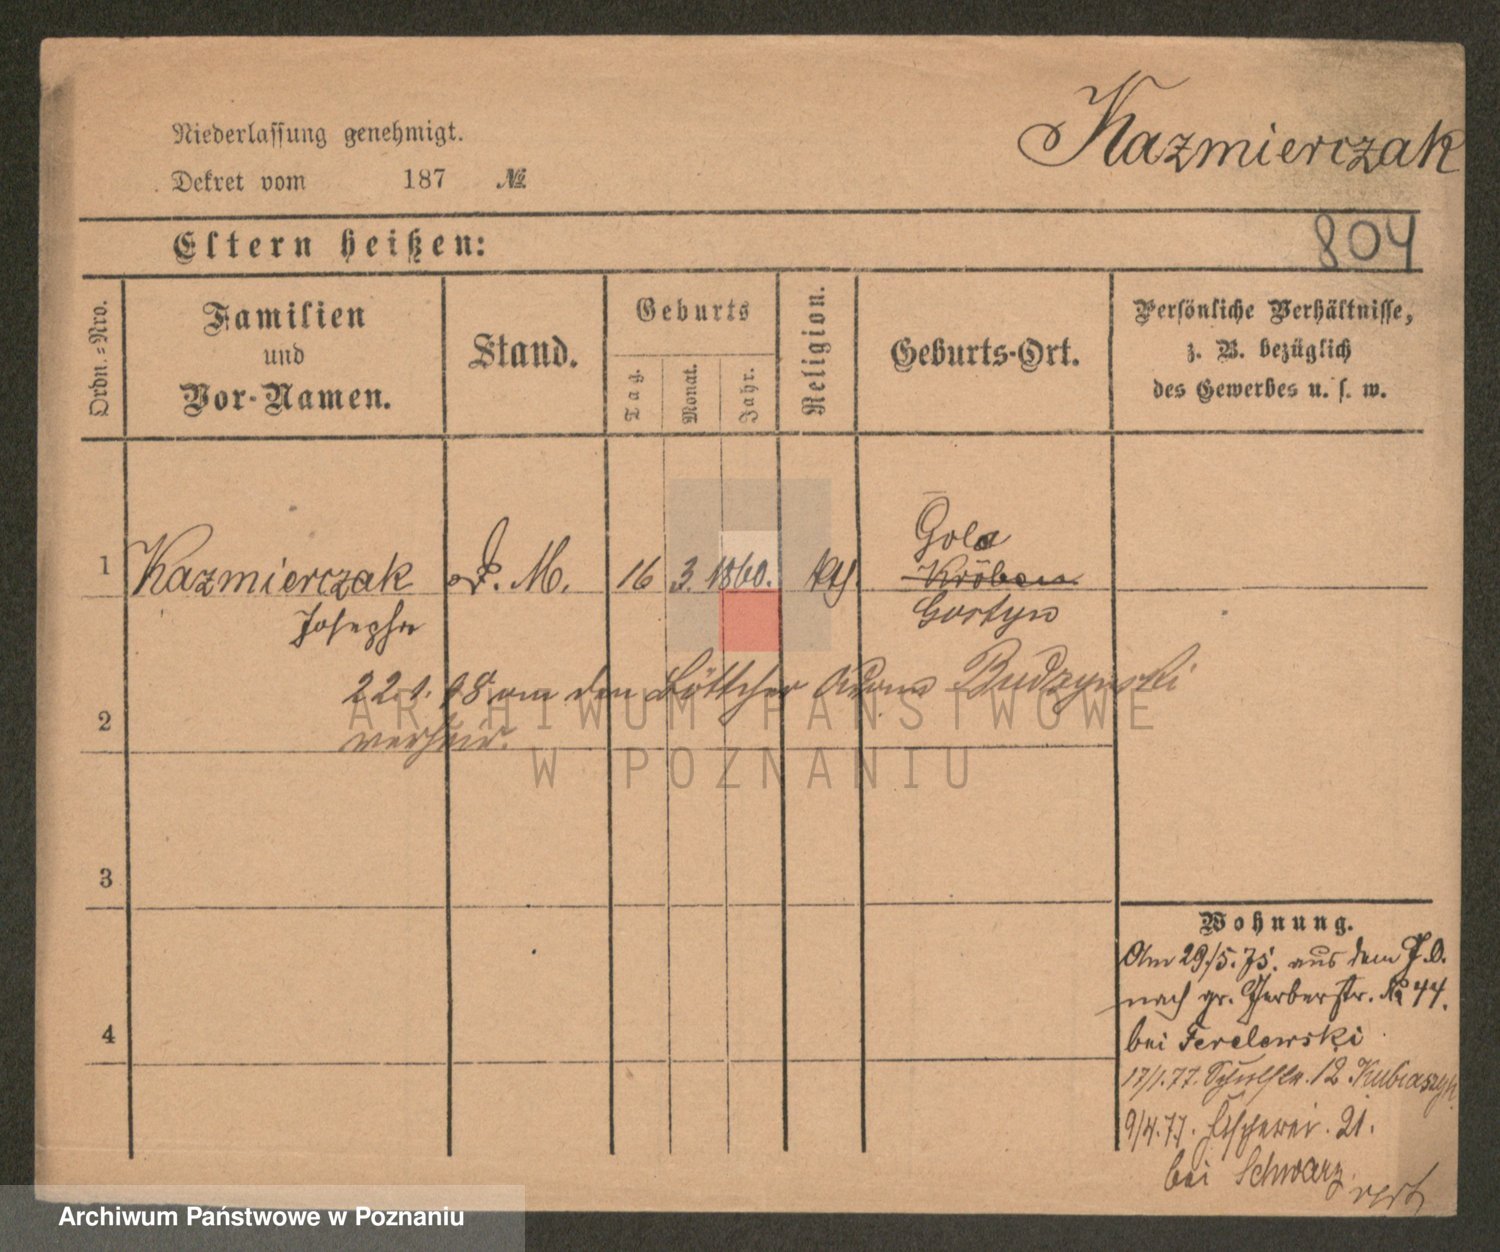 Kazmierczak
Niederlassung genehmigt.
Dekret vom 187 №
804
Eltern heißen:
Ordn.=Nro.
Familien
und
Vor-Namen.
Stand.
Geburts
Tag.
Monat.
Jahr.
Religion.
Geburts-Ort.
Persönliche Verhältnisse,
z. B. bezüglich
des Gewerbes u. s. w.
Gola
1 Kazmierczak D. M. 16 3. 1860. kth. Kröben
Josepha Gostyn
22.1.98 an den Böttcher Adam Budzynski
verheir.
2
3
4
Wohnung.
Am 29/5.75. aus dem J.O.
nach gr. Gerberstr. № 44.
bei Ferelewski
17/1.77. Schulstr. 12 Kubiaszyk
9/4.77. Fischerei. 21.
bei Schwarz
ARCHIWUM PAŃSTWOWE
W POZNANIU
Archiwum Państwowe w Poznaniu